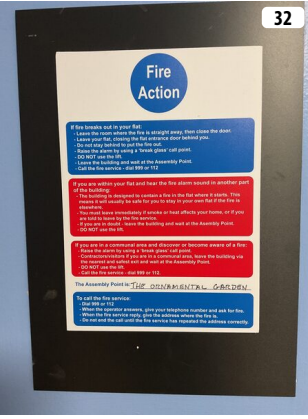 32
Fire
Action
If fire breaks out in your flat:
- Leave the room where the fire is straight away, then close the door.
- Leave your flat, closing the flat entrance door behind you.
- Do not stay behind to put the fire out.
- Raise the alarm by using a 'break glass' call point.
- DO NOT use the lift.
- Leave the building and wait at the Assembly Point.
- Call the fire service - dial 999 or 112
If you are within your flat and hear the fire alarm sound in another part
of the building:
- The building is designed to contain a fire in the flat where it starts. This
means it will usually be safe for you to stay in your own flat if the fire is
elsewhere.
- You must leave immediately if smoke or heat affects your home, or if you
are told to leave by the fire service.
- If you are in doubt - leave the building and wait at the Assembly Point.
- DO NOT use the lift.
If you are in a communal area and discover or become aware of a fire:
- Raise the alarm by using a 'break glass' call point.
- Contractors/visitors if you are in a communal area, leave the building via
the nearest and safest exit and wait at the Assembly Point.
- DO NOT use the lift.
- Call the fire service - dial 999 or 112.
The Assembly Point is: THE ORNAMENTAL GARDEN
To call the fire service:
- Dial 999 or 112
- When the operator answers, give your telephone number and ask for fire.
- When the fire service reply, give the address where the fire is.
- Do not end the call until the fire service has repeated the address correctly.